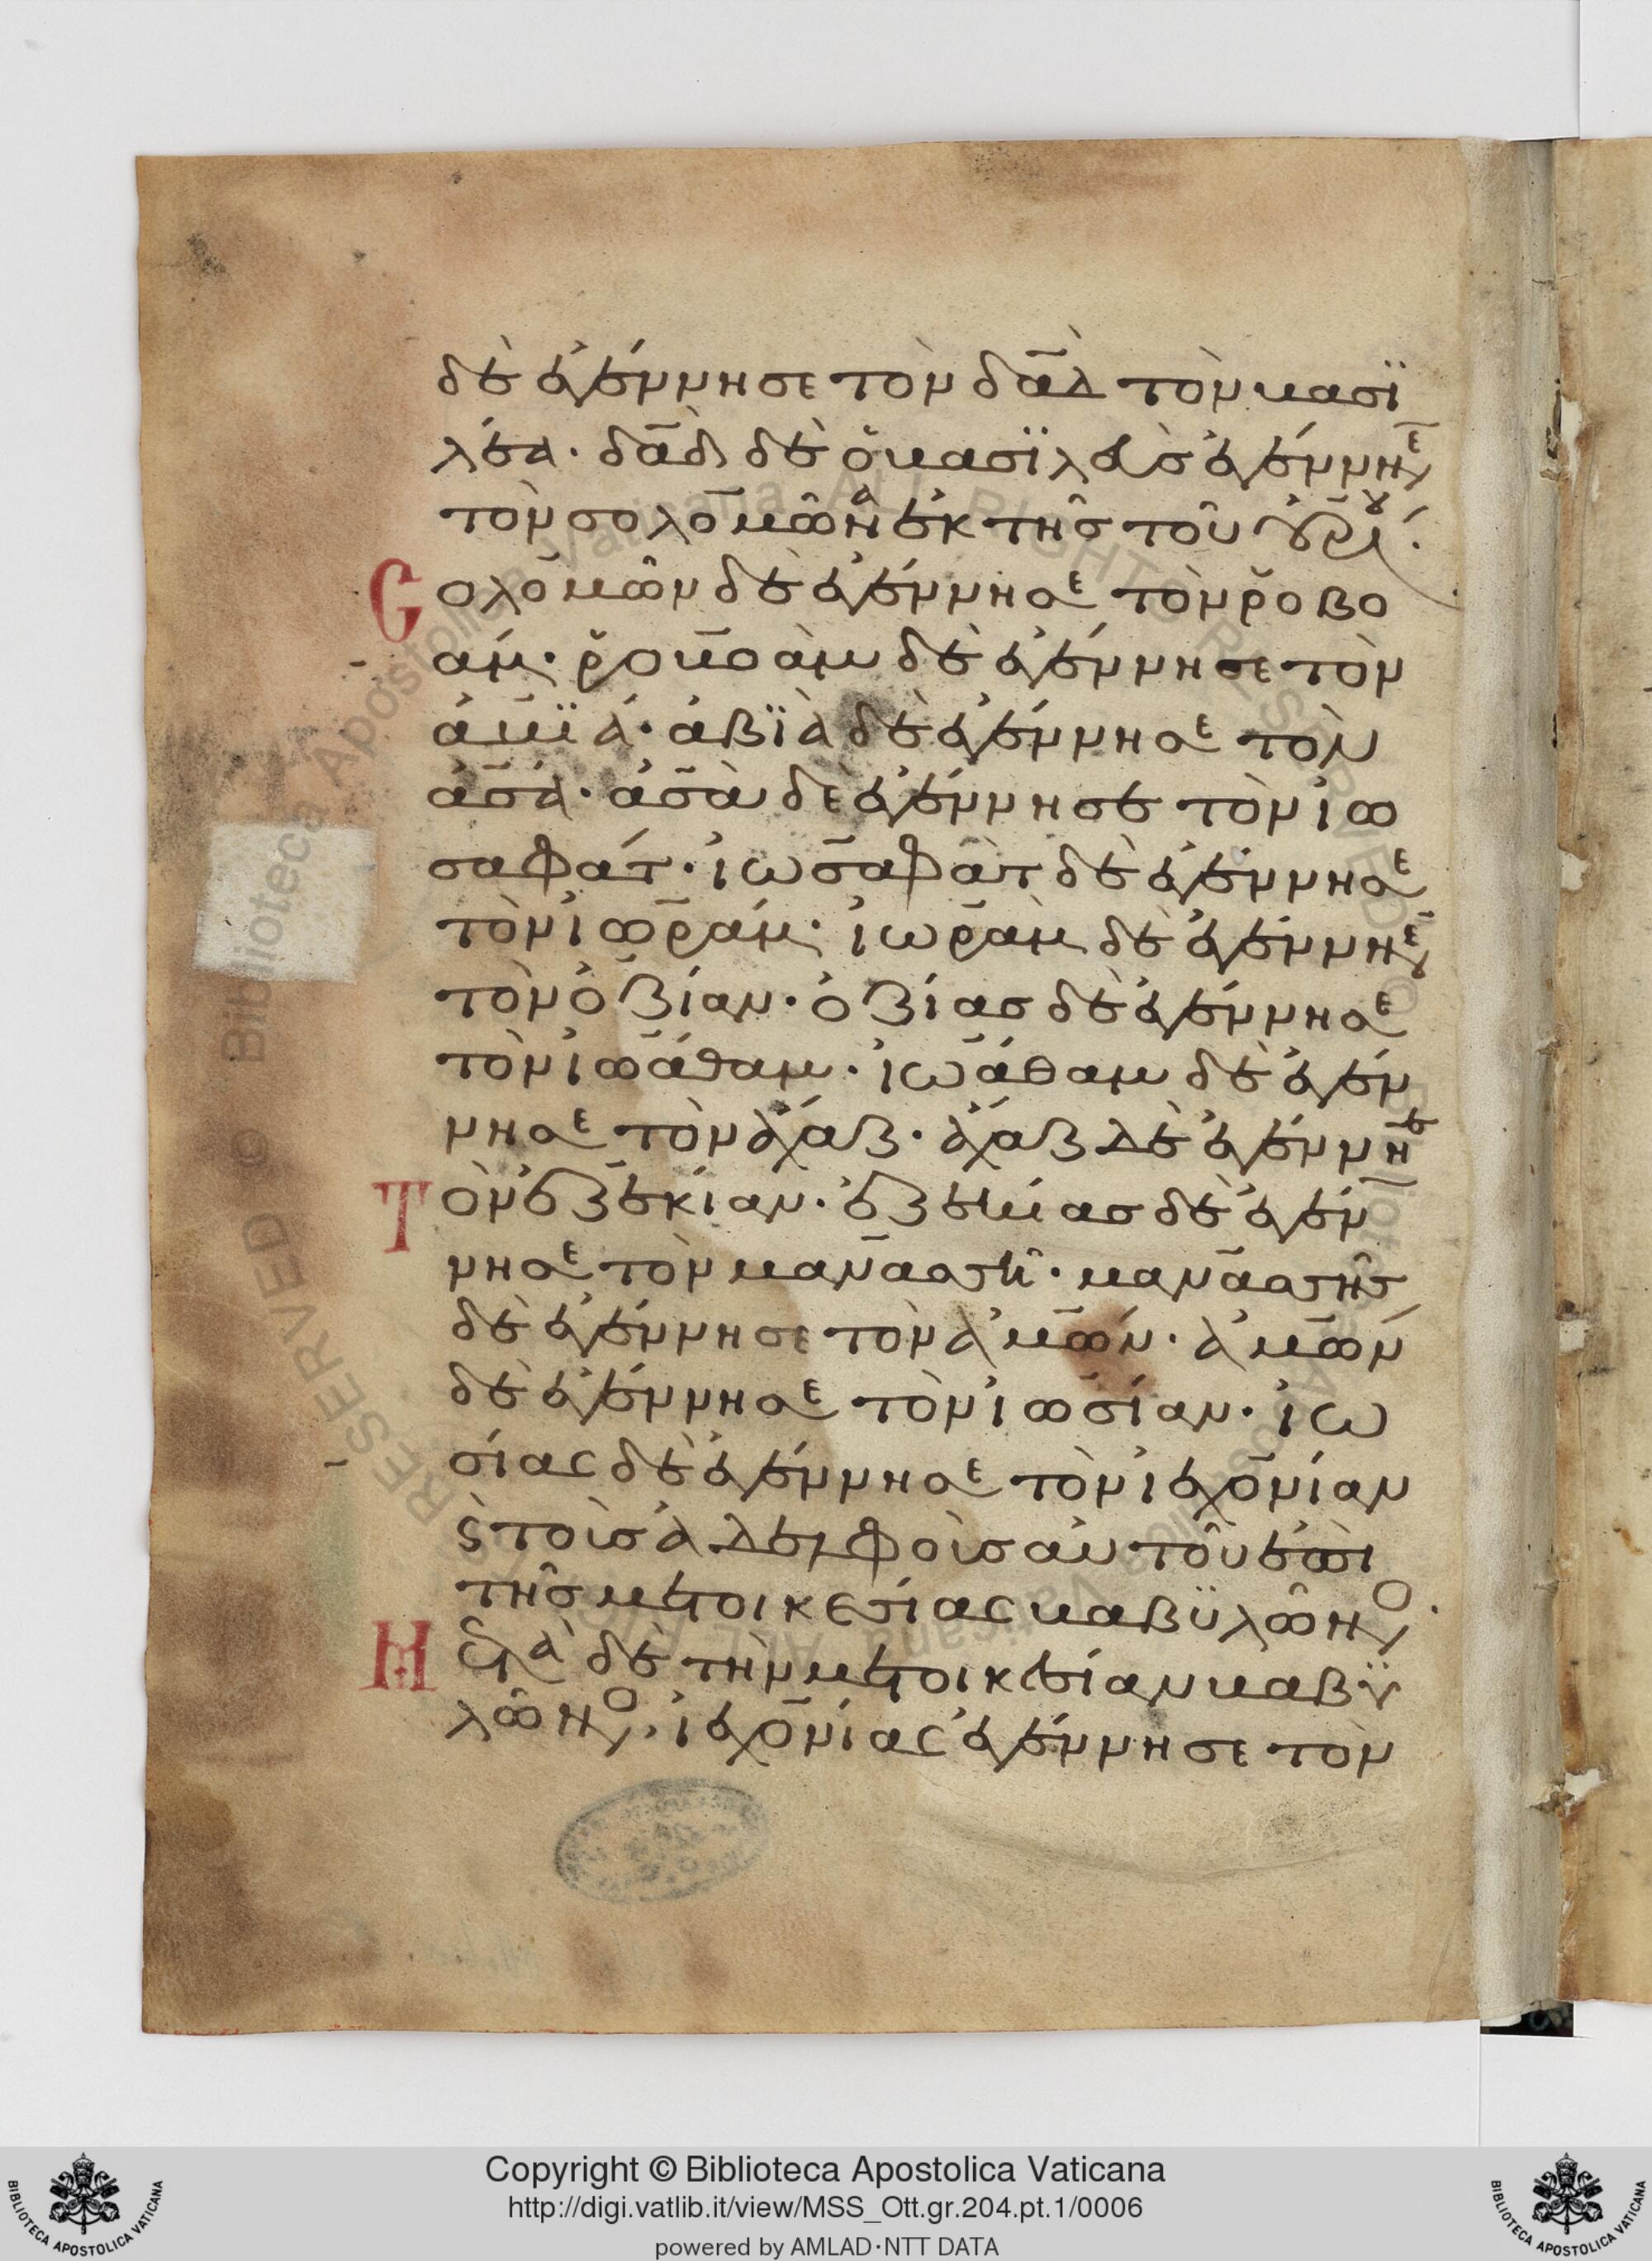 δὲ ἐγέννησε τὸν δα̅δ̀ τὸν βασϊ
λέα· δα̅δ̀ δὲ ὁ βασϊλεὺσ ἐγέννησε
τὸν σολομῶντα ἐκ τῆσ τοῦ οὐρίου·
Σολομῶν δὲ ἐγέννησε τὸν ῥοβο
άμ· ῥοβοὰμ δὲ ἐγέννησε τὸν
ἀβϊά· ἀβϊὰ δὲ ἐγέννησε τὸν
ἀσά· ἀσὰ δὲ ἐγέννησε τὸν ἰω
σαφάτ· ἰωσαφὰτ δὲ ἐγέννησε
τὸν ἰωράμ· ἰωρὰμ δὲ ἐγέννησε
τὸν ὀζίαν· ὀζίασ δὲ ἐγέννησε
τὸν ἰωάθαμ· ἰωάθαμ δὲ ἐγέν
νησε τὸν ἄχαζ· ἄχαζ δὲ ἐγέννησε
Τὸν ἐζεκίαν· ἐζεκίασ δὲ ἐγέν
νησε τὸν μανασσῆ· μανασσῆσ
δὲ ἐγέννησε τὸν ἀμών· ἀμὼν
δὲ ἐγέννησε τὸν ἰωσίαν· ἰω
σίας δὲ ἐγέννησε τὸν ἰεχονίαν
ϛ̀ τοὺσ ἀδελφοὺσ αὐτοῦ ἐπὶ
τῆσ μετοικεσίας βαβϋλῶνος·
Μετὰ δὲ τὴν μετοικεσίαν βαβϋ
λῶνος, ἰεχονίας ἐγέννησε τὸν
Copyright © Biblioteca Apostolica Vaticana
http://digi.vatlib.it/view/MSS_Ott.gr.204.pt.1/0006
powered by AMLAD·NTT DATA